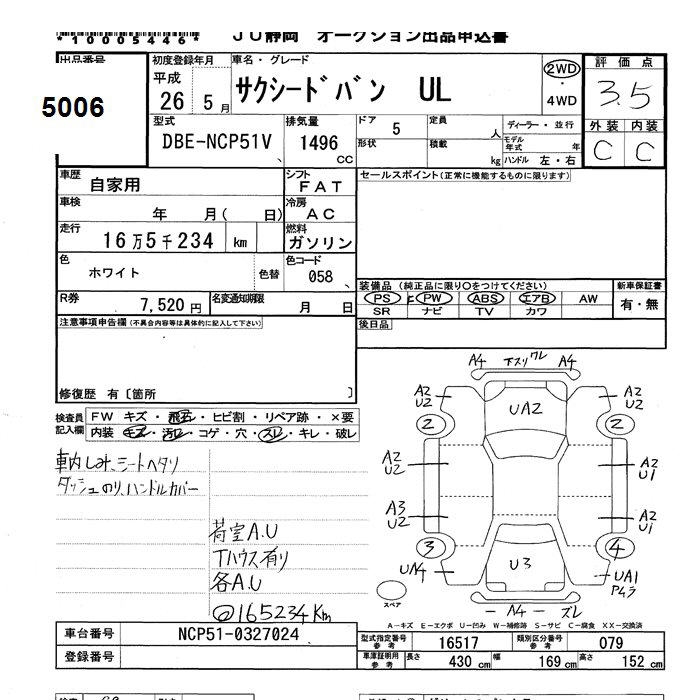 *10005446*
JU静岡 オークション出品申込書
出品番号
5006
初度登録年月
平成
26 5月
車名・グレード
サクシードバン UL
2WD
・
4WD
評価点
3.5
外装 内装
C C
型式
DBE-NCP51V
排気量
1496
CC
ドア 5
形状
定員 人
積載 kg
ディーラー・並行
モデル年式 年
ハンドル 左・右
車歴
自家用
シフト
FAT
車検
年 月( 日)
冷房
AC
走行
16万5千234 km
燃料
ガソリン
色
ホワイト
色替
色コード
058
R券
7,520円
名変通知期限
月 日
セールスポイント(正常に機能するものに限ります)
装備品 (純正品に限り○をつけてください)
PS PW ABS エアB AW
SR ナビ TV カワ
新車保証書
有・無
後日品
注意事項申告欄(不具合内容等は具体的に記入して下さい)
修復歴 有〔箇所 〕
検査員記入欄
FW キズ・飛石・ヒビ割・リペア跡・×要
内装 キズ・汚れ・コゲ・穴・スレ・キレ・破レ
車内しみ、シートヘタリ
ダッシュのり、ハンドルカバー
荷室A.U
Tハウス有り
各A.U
@165234Km
A4 下スリ ワレ A4
A2 U2
UA2
A2 U2
2 2
A2 U2
A2 U1
A3 U2
A2 U1
3 4
UA4
U3
UA1
P4ラ
スペア
A4 ズレ
A-キズ E-エクボ U-凹み W-補修跡 S-サビ C-腐食 XX-交換済
車台番号
NCP51-0327024
登録番号
型式指定番号 参考
16517
類別区分番号 参考
079
車庫証明用 参考
長さ 430 cm
幅 169 cm
高さ 152 cm